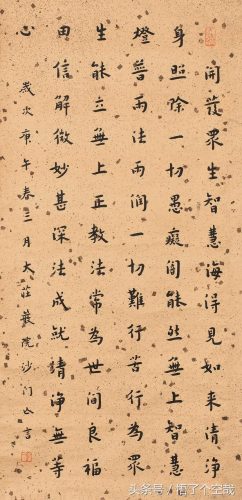 開發眾生智慧海得見如來清淨
身照除一切愚癡闇能然無上智慧
燈普雨法雨潤一切難行苦行為眾
生能立無上正教法常為世間良福
田信解微妙甚深法成就清淨無等
心 歲次庚午春三月大莊嚴院沙门亡言
头条号 / 悟了个空哉